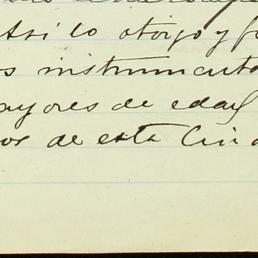 Así lo otorgo y f
s instrumento
ayores de edad
os de esta Ciu